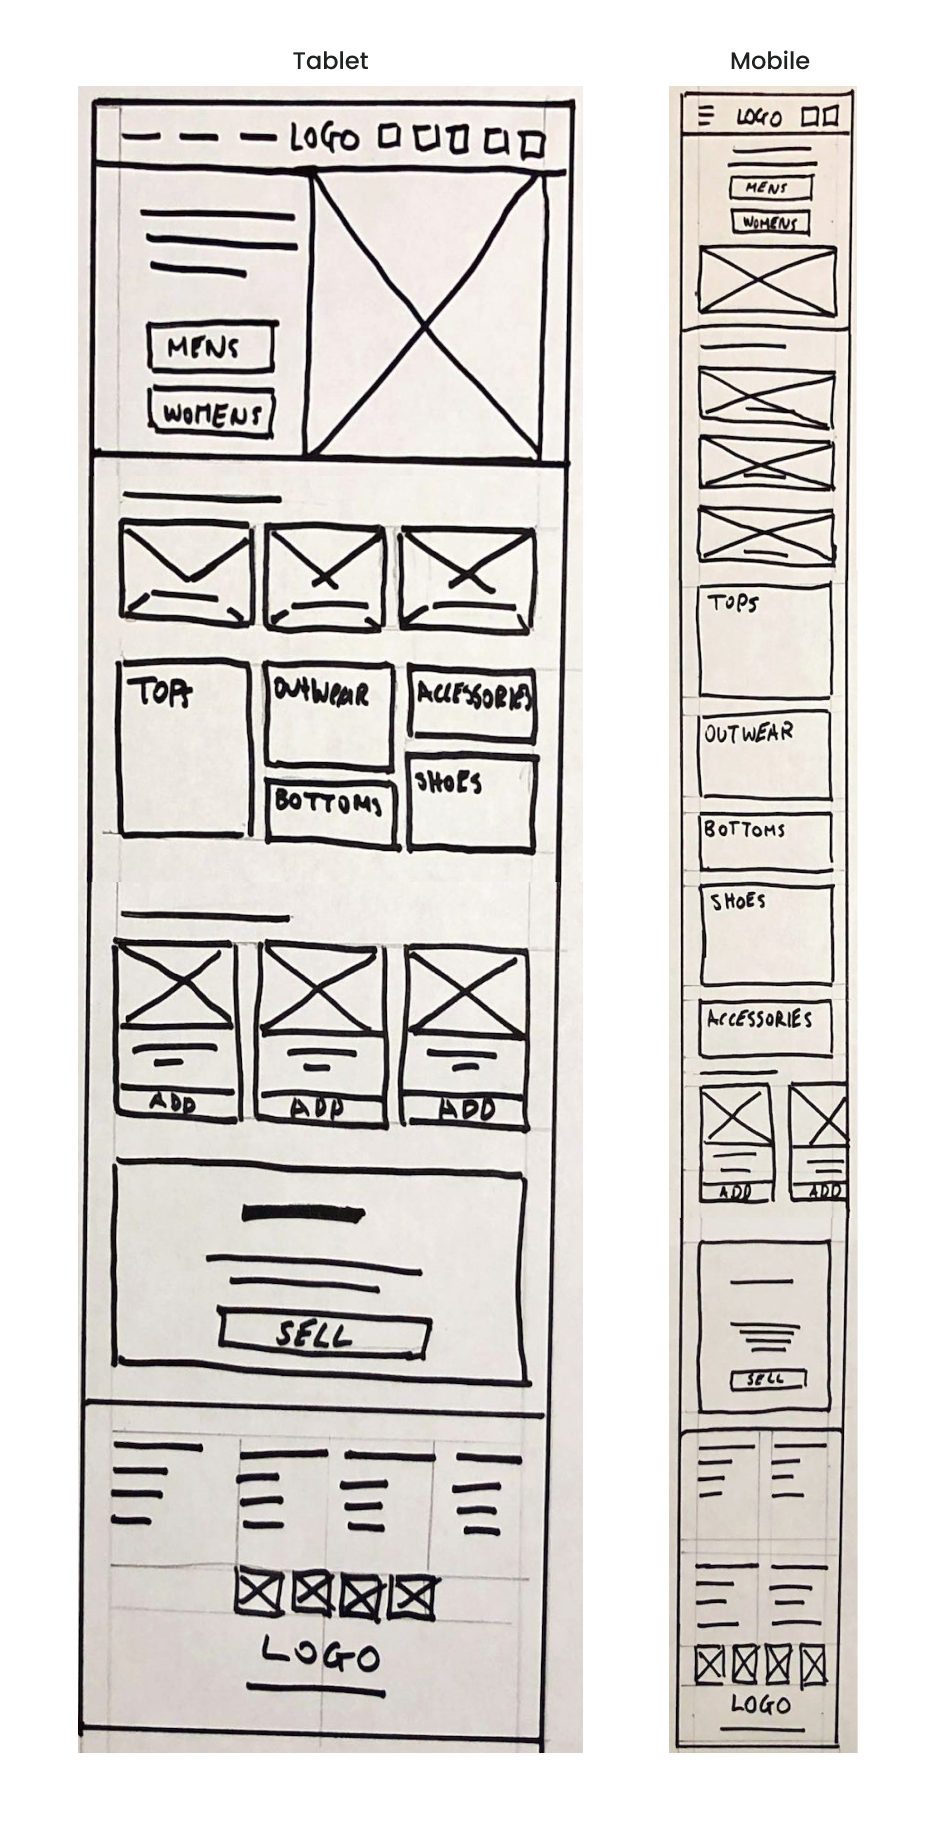 Tablet
LOGO
MENS
WOMENS
TOPS
OUTWEAR
ACCESSORIES
BOTTOMS
SHOES
ADD
ADD
ADD
SELL
LOGO
Mobile
LOGO
MENS
WOMENS
TOPS
OUTWEAR
BOTTOMS
SHOES
ACCESSORIES
ADD
ADD
SELL
LOGO